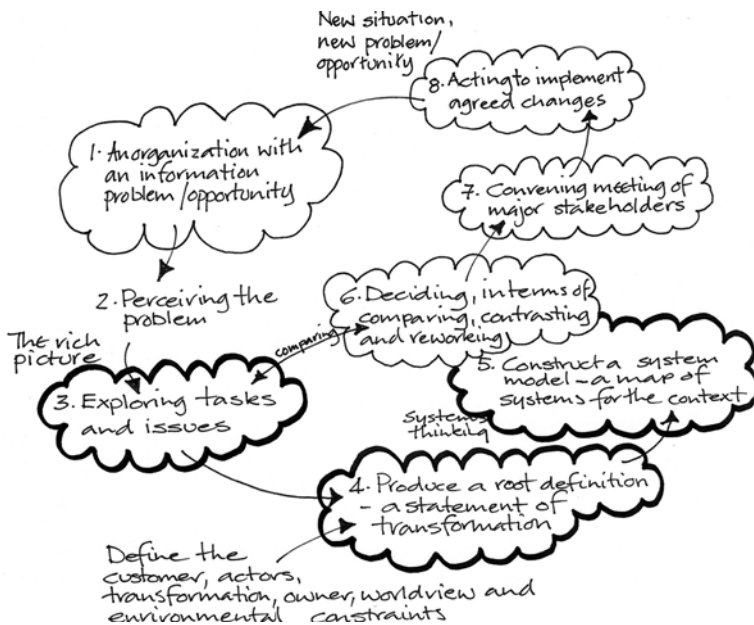 New situation,
new problem/
opportunity
8. Acting to implement
agreed changes
1. An organization with
an information
problem/opportunity
7. Convening meeting of
major stakeholders
2. Perceiving the
problem
6. Deciding, in terms of
comparing, contrasting
and reworking
The rich
picture
comparing
5. Construct a system
model - a map of
systems for the context
3. Exploring tasks
and issues
Systems
thinking
4. Produce a root definition
- a statement of
transformation
Define the
customer, actors,
transformation, owner, worldview and
environmental constraints